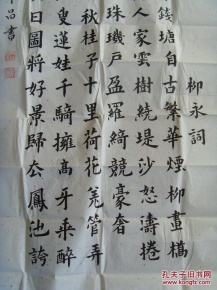 柳永詞
錢塘自古繁華煙柳畫橋
人家雲樹繞堤沙怒濤捲
珠璣戶盈羅綺競豪奢
秋桂子十里荷花羌管弄
叟蓮娃千騎擁高牙乘醉
日圖將好景歸去鳳池誇
昌書